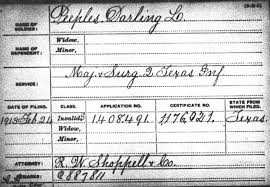 NAME OF SOLDIER: Peeples, Darling L.
NAME OF DEPENDENT: Widow,
Minor,
SERVICE: Maj. & Surg. 2 Texas Inf.
DATE OF FILING. CLASS. APPLICATION NO. CERTIFICATE NO. STATE FROM WHICH FILED.
1913 Feb 21 Invalid, 1408491 1176021 Texas.
Widow,
Minor,
ATTORNEY: R. W. Shoppell & Co.
REMARKS: C 887811